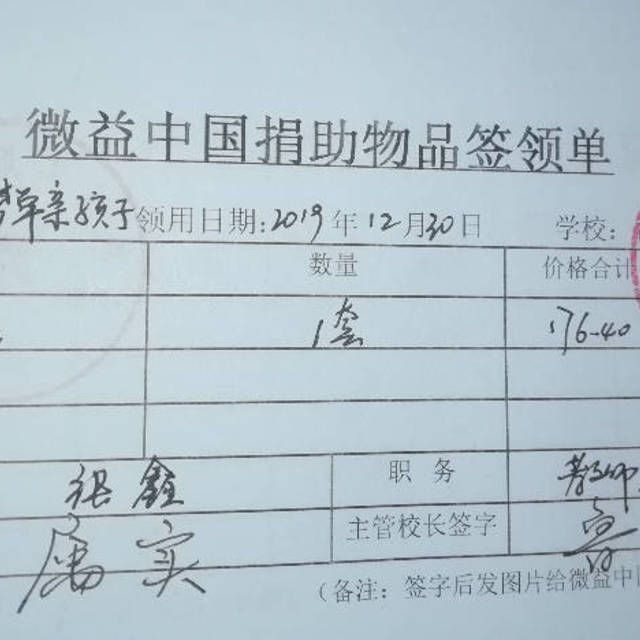 微益中国捐助物品签领单
草亲孩子领用日期:2019年12月30日 学校:
数量 价格合计
1套 176.40
张鑫 职务 教师
属实 主管校长签字
(备注:签字后发图片给微益中国